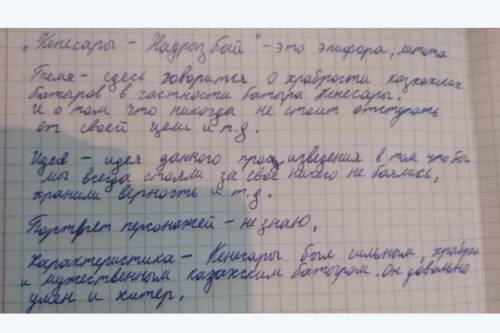 "Кенесары - Наурызбай" - это эпифора, литота
Тема - здесь говорится о храбрости казахских
батыров в частности батыра Кенесары.
и о том что никогда не стоит отступать
от своей цели и т.д.
Идея - идея данного произведения в том чтобы
мы всегда стояли за своё ничего не боялись,
хранили верность и т.д.
Портрет персонажей - не знаю.
Характеристика - Кенесары был сильным, храбрым
и мужественным казахским батыром. он довольно
умен и хитер.